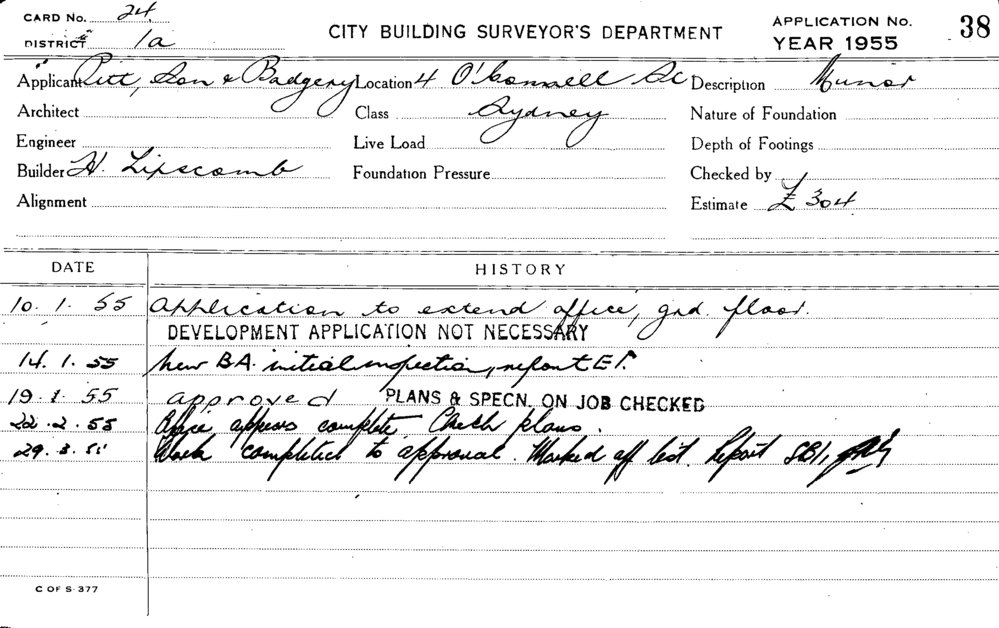 CARD No. 24
CITY BUILDING SURVEYOR'S DEPARTMENT
APPLICATION No. 38
DISTRICT 1a
YEAR 1955
Applicant Pitt, Son & Badgery Location 4 O'Connell St Description Minor
Architect Class Sydney Nature of Foundation
Engineer Live Load Depth of Footings
Builder H. Lipscomb Foundation Pressure Checked by
Alignment Estimate £304
DATE HISTORY
10. 1. 55 Application to extend office, grd. floor.
DEVELOPMENT APPLICATION NOT NECESSARY
14. 1. 55 New B.A. initial inspection, report
19. 1. 55 approved PLANS & SPECN. ON JOB CHECKED
22. 2. 55 Office appears complete. Check plans.
29. 3. 55 Work completed to approval. Marked off list. Report SBI,
C OF S·377